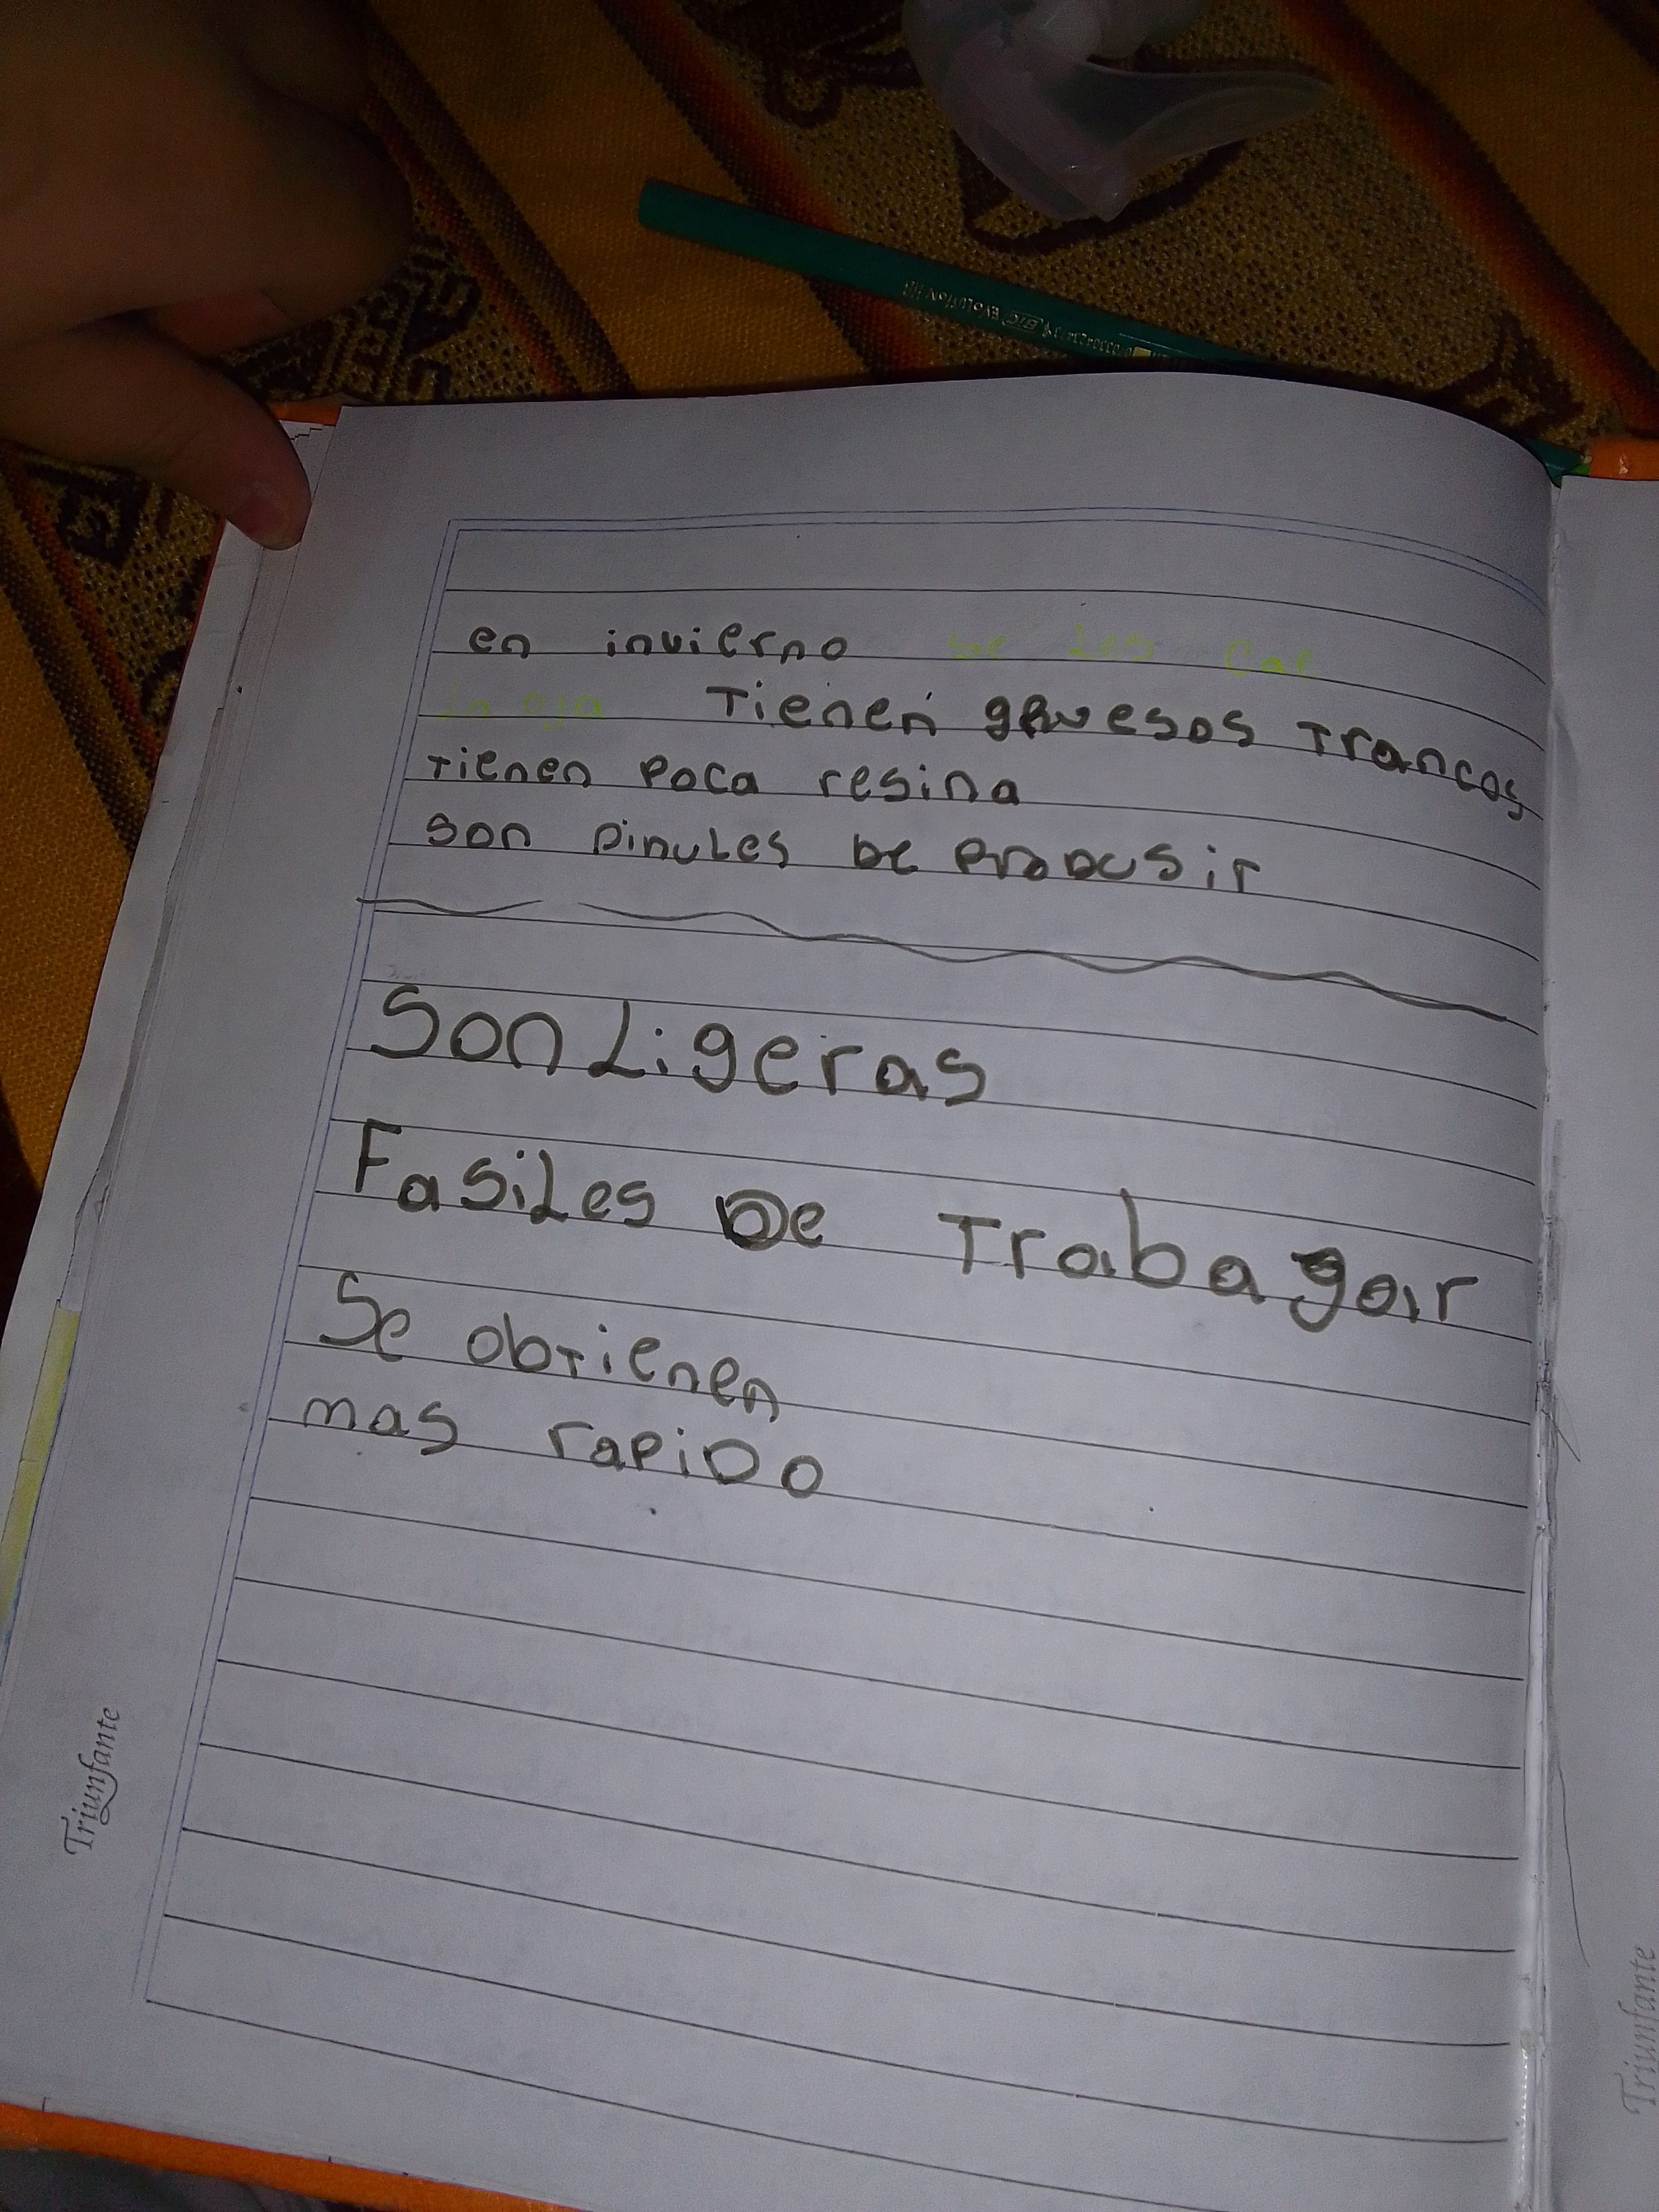 en invierno se les cae
la oja Tienen gruesos Trancos
Tienen poca resina
son pinules de produsir
Son Ligeras
Fasiles De Trabagar
Se obtienen
mas rapido
Triunfante
Triunfante
BIC EVOLUTION HB